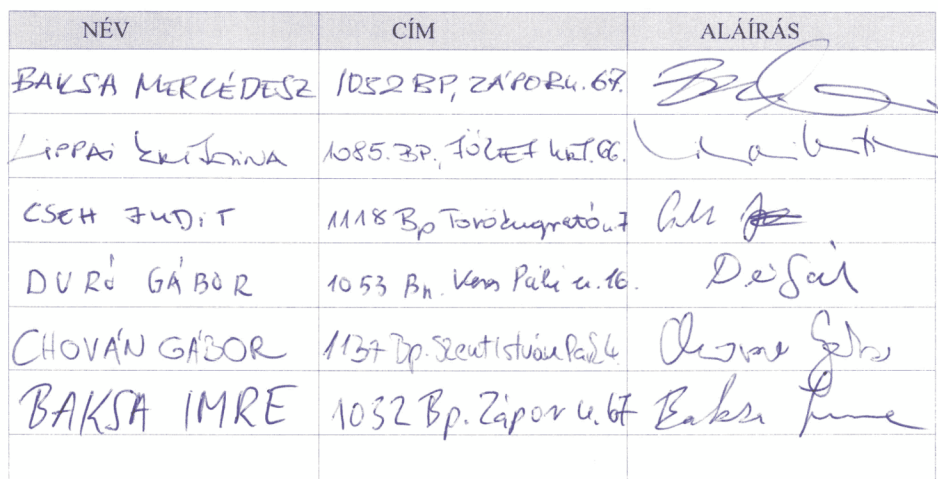 NÉV CÍM ALÁÍRÁS
BAKSA MERCÉDESZ 1032 BP, ZÁPOR u. 67.
LIPPAI KRISZTINA 1085. BP., JÓZSEF KRT. 66.
CSEH JUDIT 1118 Bp Törökugrató u. 7
DURÓ GÁBOR 1053 Bp. Veres Pálné u. 16.
CHOVÁN GÁBOR 1137 Bp. Szent István Park 4
BAKSA IMRE 1032 Bp. Zápor u. 67 Baksa Imre